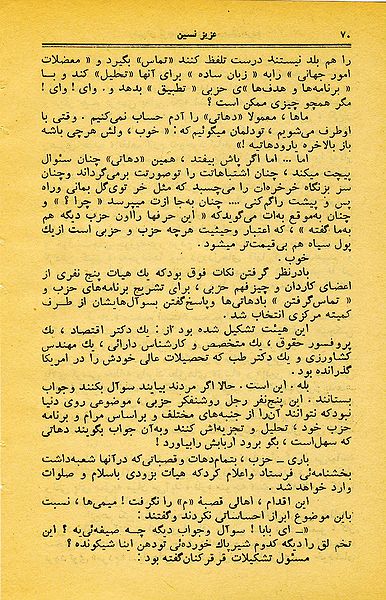 ۷۰
عزیز نسین
را هم بلد نیستند درست تلفظ کنند «تماس» بگیرد و « معضلات
امور جهانی » رابه « زبان ساده » برای آنها «تحلیل» کند و با
« برنامه‌ها و هدف‌ها »ی حزبی « تطبیق » بدهد و . وای ! وای !
مگر همچو چیزی ممکن است ؟
ماها ، معمولا «دهاتی» را آدم حساب نمی‌کنیم . وقتی با
اوطرف می‌شویم ، تودلمان میگوئیم‌که : « خوب ، ولش هرچی باشه
باز بالاخره یارودهاتیه !»
اما ... اما اگر پاش بیفتد ، همین «دهاتی» چنان سئوال
پیچت میکند ، چنان اشتباهاتت را توصورتت برمی‌گرداند وچنان
سر بزنگاه خرخره‌ات را می‌چسبد که مثل خر توی‌گل بمانی وراه
پس و پیشت راگم‌کنی .... چنان به‌جا ازت میپرسد « چرا ؟ » و
چنان به‌موقع به‌ات می‌گویدکه « این حرفها رااون حزب دیگه هم
به‌ما گفته » ، که اعتبار وحیثیت هرچه حزب و حزبی است ازیك
پول سیاه هم بی‌قیمت‌تر میشود .
خوب .
بادرنظر گرفتن نکات فوق بودکه یك هیات پنج نفری از
اعضای کاردان و چیزفهم حزبی ، برای تشریح برنامه‌های حزب و
« تماس‌گرفتن » بادهاتی‌ها وپاسخ‌گفتن بسوآل‌هایشان از طرف
کمیته مرکزی انتخاب شد .
این هیئت تشکیل شده بود از : یك دکتر اقتصاد ، یك
پروفسور حقوق ، یك متخصص و کارشناس دارائی ، یك مهندس
کشاورزی و یك دکتر طب که تحصیلات عالی خودش را در امریکا
گذرانده بود .
بله . این است . حالا اگر مردند بیایند سوآل بکنند وجواب
بستانند . این پنج‌نفر رجل روشنفکر حزبی ، موضوعی روی دنیا
نبودکه نتوانند آن‌را از جنبه‌های مختلف و براساس مرام و برنامه
حزب خود ، تحلیل و تجزیه‌اش کنند وبه‌آن جواب بگویند دهاتی
که سهل‌است ، بگو برود اربابش رابیاورد !
باری ـ حزب ، بتمام‌دهات وقصباتی‌که درآنها شعبه‌داشت
بخشنامه‌ئی فرستاد واعلام کردکه هیات بزودی باسلام و صلوات
وارد خواهد شد .
این اقدام ، اهالی قصبهٔ «م» را نگرفت ! میمی‌ها ، نسبت
باین موضوع ابراز احساساتی نکردند وگفتند :
«ـ ای بابا ! سوآل وجواب دیگه چه صیغه‌ئی‌یه ؟ این
تخم لق را دیگه کدوم شیرپاك خورده‌ئی تودهن اینا شیکونده ؟
مسئول تشکیلات قرقرکنان‌گفته بود :